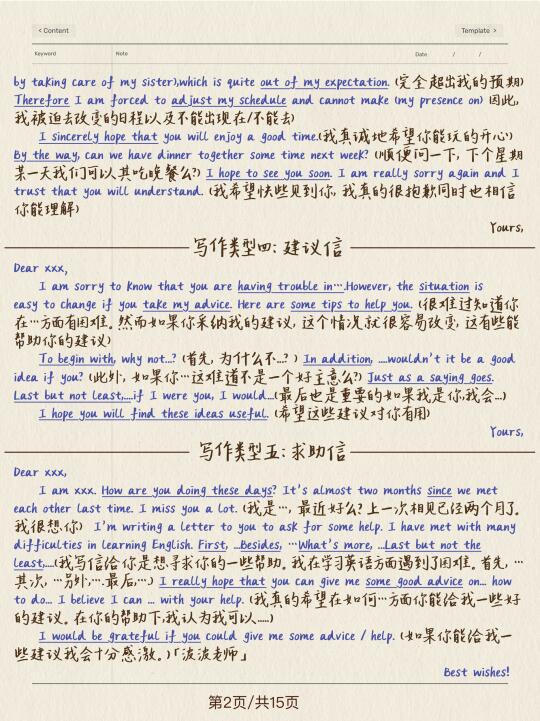 < Content
Template >
Keyword
Note
Date / /
by taking care of my sister),which is quite out of my expectation. (完全超出我的预期)
Therefore I am forced to adjust my schedule and cannot make (my presence on) 因此,
我被迫去改变的日程以及不能出现在/不能去)
I sincerely hope that you will enjoy a good time.(我真诚地希望你能玩的开心)
By the way, can we have dinner together some time next week? (顺便问一下, 下个星期
某一天我们可以共吃晚餐么?) I hope to see you soon. I am really sorry again and I
trust that you will understand. (我希望快些见到你, 我真的很抱歉同时也相信
你能理解)
Yours,
写作类型四: 建议信
Dear xxx,
I am sorry to know that you are having trouble in….However, the situation is
easy to change if you take my advice. Here are some tips to help you. (很难过知道你
在…方面有困难。然而如果你采纳我的建议, 这个情况就很容易改变, 这有些能
帮助你的建议)
To begin with, why not…? (首先, 为什么不…? ) In addition, ….wouldn't it be a good
idea if you? (此外, 如果你…这难道不是一个好主意么?) Just as a saying goes.
Last but not least,….if I were you, I would…(最后也是重要的如果我是你,我会…)
I hope you will find these ideas useful. (希望这些建议对你有用)
Yours,
写作类型五: 求助信
Dear xxx,
I am xxx. How are you doing these days? It's almost two months since we met
each other last time. I miss you a lot. (我是…, 最近好么? 上一次相见已经两个月了。
我很想你) I'm writing a letter to you to ask for some help. I have met with many
difficulties in learning English. First, …Besides, …What's more, …Last but not the
least,….(我写信给你是想寻求你的一些帮助。我在学习英语方面遇到了困难。首先, …
其次, …另外,….最后,…) I really hope that you can give me some good advice on… how
to do… I believe I can … with your help. (我真的希望在如何…方面你能给我一些好
的建议。在你的帮助下,我认为我可以…..)
I would be grateful if you could give me some advice / help. (如果你能给我一
些建议我会十分感激。)「波波老师」
Best wishes!
第2页/共15页